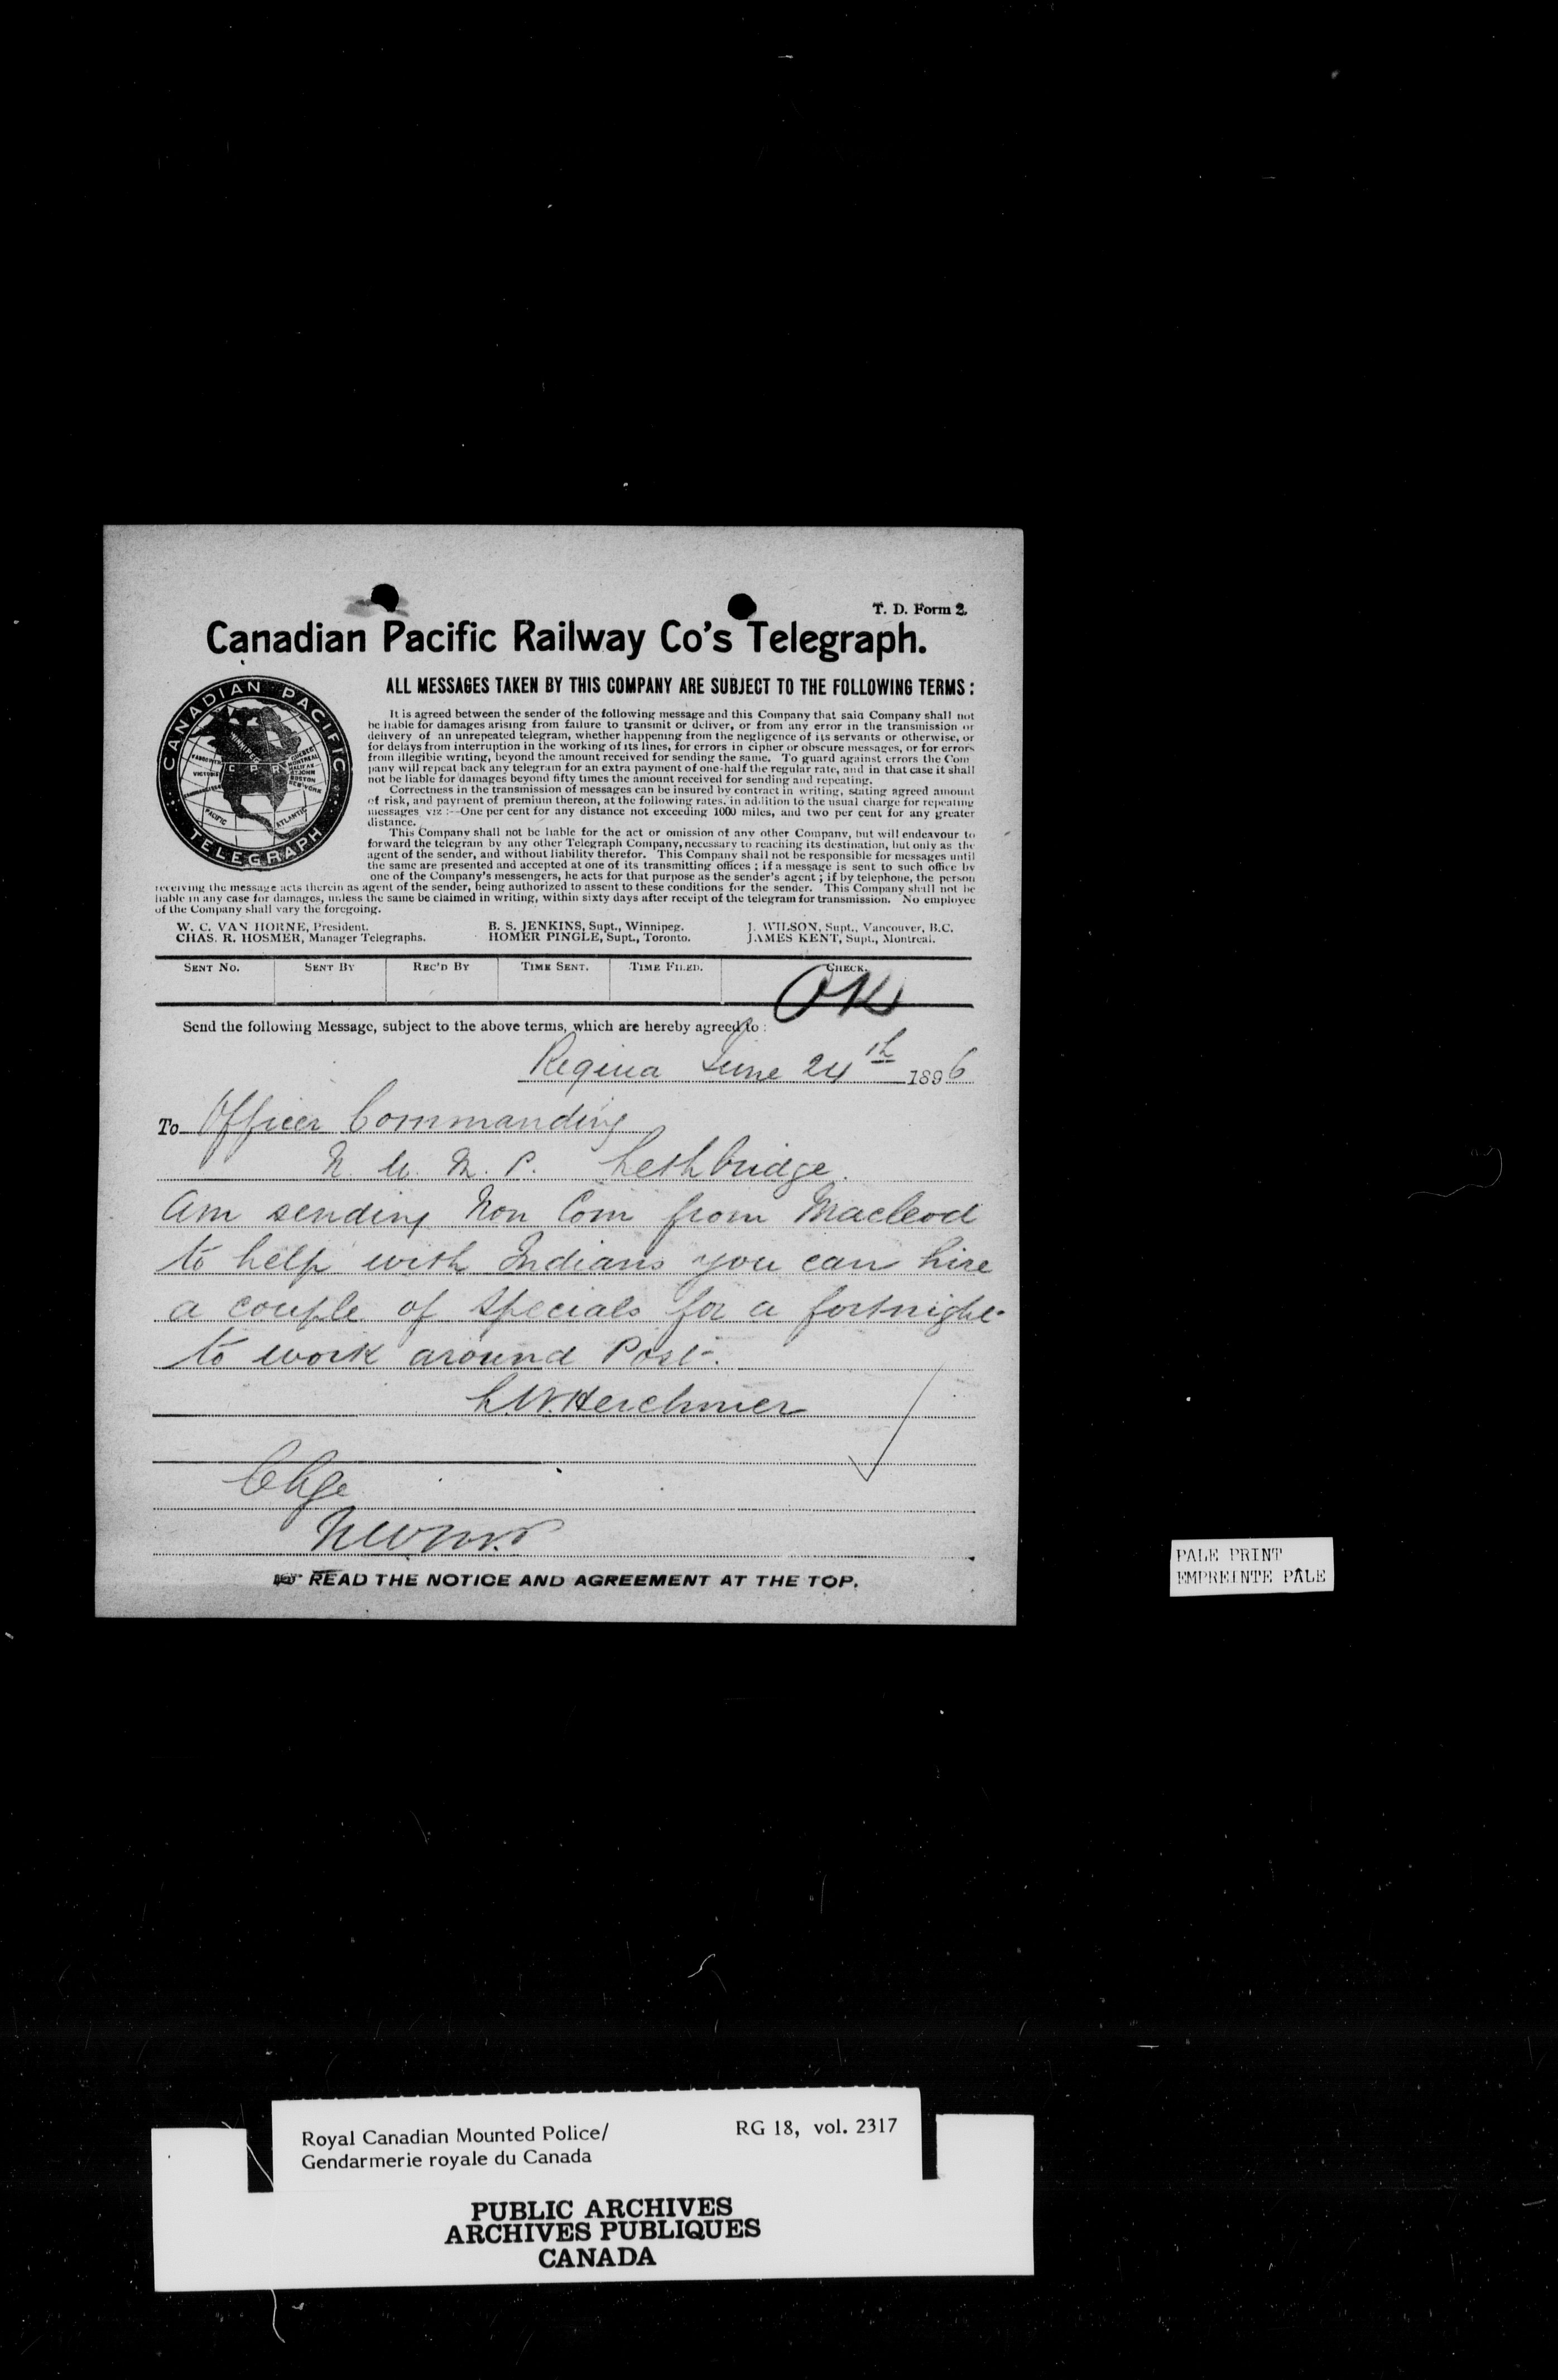 T. D. Form 2.
Canadian Pacific Railway Co's Telegraph.
ALL MESSAGES TAKEN BY THIS COMPANY ARE SUBJECT TO THE FOLLOWING TERMS :
CANADIAN PACIFIC
TELEGRAPH
C P R
VICTORIA
QUEBEC
MONTREAL
HALIFAX
ST JOHN
BOSTON
NEW YORK
PACIFIC
ATLANTIC
It is agreed between the sender of the following message and this Company that said Company shall not
be liable for damages arising from failure to transmit or deliver, or from any error in the transmission or
delivery of an unrepeated telegram, whether happening from the negligence of its servants or otherwise, or
for delays from interruption in the working of its lines, for errors in cipher or obscure messages, or for errors
from illegible writing, beyond the amount received for sending the same. To guard against errors the Com
pany will repeat back any telegram for an extra payment of one-half the regular rate, and in that case it shall
not be liable for damages beyond fifty times the amount received for sending and repeating.
Correctness in the transmission of messages can be insured by contract in writing, stating agreed amount
of risk, and payment of premium thereon, at the following rates, in addition to the usual charge for repeating
messages viz :--One per cent for any distance not exceeding 1000 miles, and two per cent for any greater
distance.
This Company shall not be liable for the act or omission of any other Company, but will endeavour to
forward the telegram by any other Telegraph Company, necessary to reaching its destination, but only as the
agent of the sender, and without liability therefor. This Company shall not be responsible for messages until
the same are presented and accepted at one of its transmitting offices ; if a message is sent to such office by
one of the Company's messengers, he acts for that purpose as the sender's agent ; if by telephone, the person
receiving the message acts therein as agent of the sender, being authorized to assent to these conditions for the sender. This Company shall not be
liable in any case for damages, unless the same be claimed in writing, within sixty days after receipt of the telegram for transmission. No employee
of the Company shall vary the foregoing.
W. C. VAN HORNE, President. B. S. JENKINS, Supt., Winnipeg. J. WILSON, Supt., Vancouver, B.C.
CHAS. R. HOSMER, Manager Telegraphs. HOMER PINGLE, Supt., Toronto. JAMES KENT, Supt., Montreal.
SENT NO. SENT BY REC'D BY TIME SENT. TIME FILED. CHECK.
OK
Send the following Message, subject to the above terms, which are hereby agreed to :
Regina June 24th 1896
To Officer Commanding
N. W. M. P. Lethbridge.
Am sending Non Com from Macleod
to help with Indians you can hire
a couple of specials for a fortnight
to work around Post.
L.W. Herchmer
Chge
NWMP
READ THE NOTICE AND AGREEMENT AT THE TOP.
PALE PRINT
EMPREINTE PÂLE
Royal Canadian Mounted Police/ RG 18, vol. 2317
Gendarmerie royale du Canada
PUBLIC ARCHIVES
ARCHIVES PUBLIQUES
CANADA